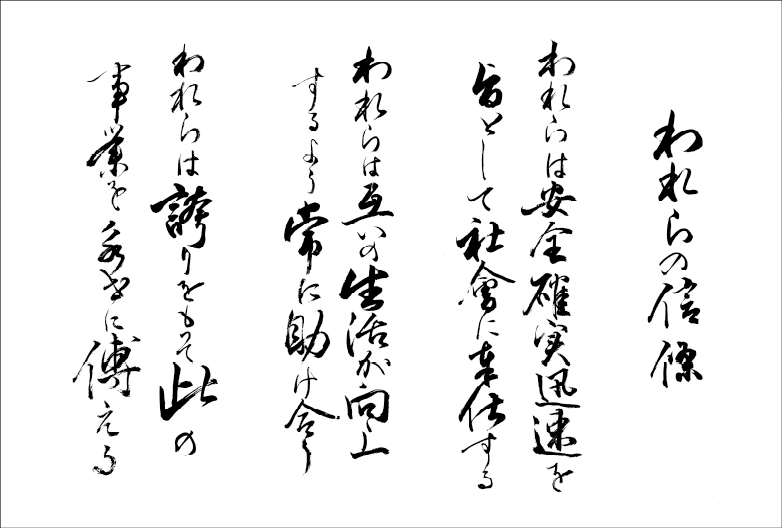 われらの信條
われらは安全確実迅速を
旨として社會に奉仕する
われらは互いの生活が向上
するよう常に助け合う
われらは誇りをもって此の
事業を永遠に傳える